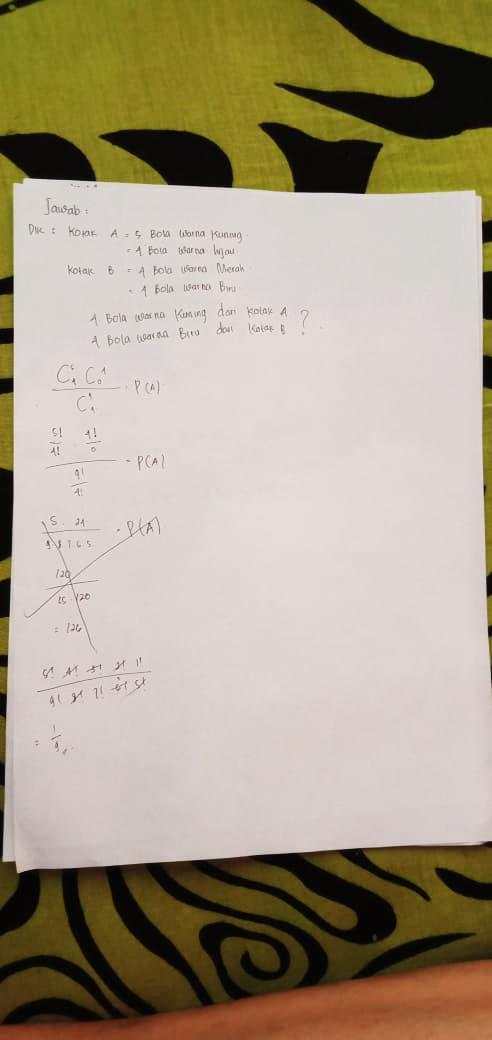 Jawab :
Dik : Kotak A = 5 Bola Warna Kuning.
= 4 Bola Warna hijau
Kotak B = 4 Bola Warna Merah
= 4 Bola Warna Biru
4 Bola warna Kuning dari kotak A
4 Bola warna Biru dari Kotak B ?
= P(A)
5! 4!
4! 0
= P(A)
9!
4!
5 . 24
= P(A)
9 8 7 6 5
120
15 120
= 126
5! 4! 3! 2! 1!
9! 8! 7! 6! 5!
= 1
9